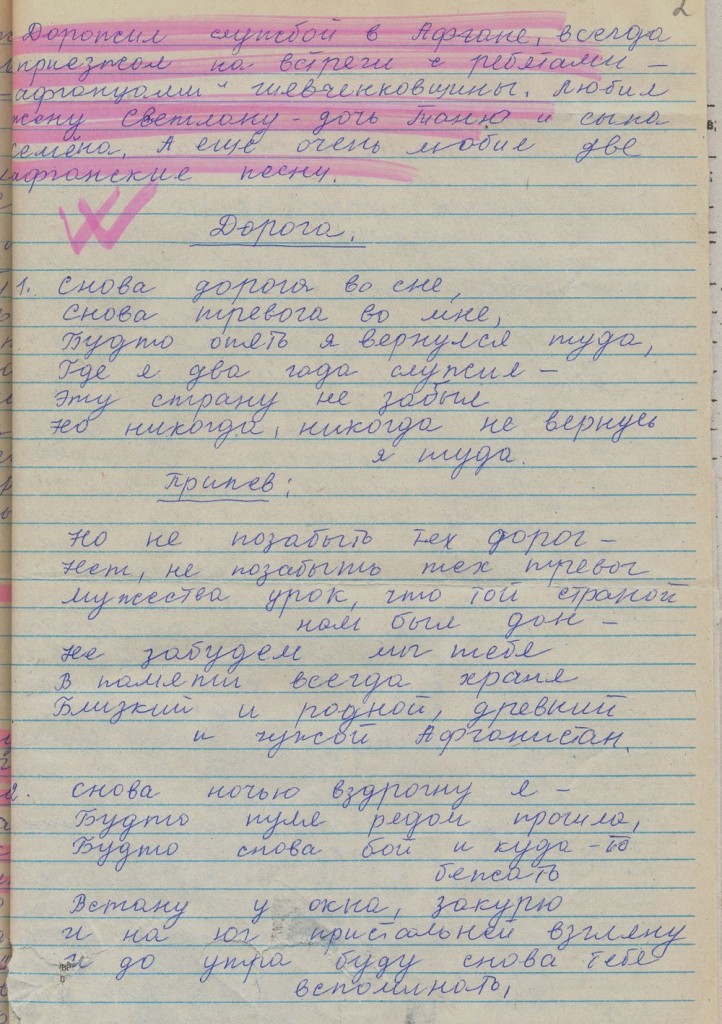 2
Дорожил службой в Афгане, всегда
приезжал на встречи с ребятами –
"афганцами" Шевченковщины. Любил
жену Светлану – дочь Таню и сына
Семёна. А ещё очень любил две
афганские песни.
Дорога.
1. Снова дорога во сне,
Снова тревога во мне,
Будто опять я вернулся туда,
Где я два года служил –
Эту страну не забыл
Но никогда, никогда не вернусь
я туда.
Припев:
Но не позабыть тех дорог –
Нет, не позабыть тех тревог
Мужества урок, что той страной
нам был дан –
Не забудем мы тебя
В памяти всегда храня
Близкий и родной, древний
и чужой Афганистан.
2. Снова ночью вздрогну я –
Будто пуля рядом прошла,
Будто снова бой и куда-то
бежать
Встану у окна, закурю
И на юг пристальней взгляну
И до утра буду снова тебя
вспоминать,